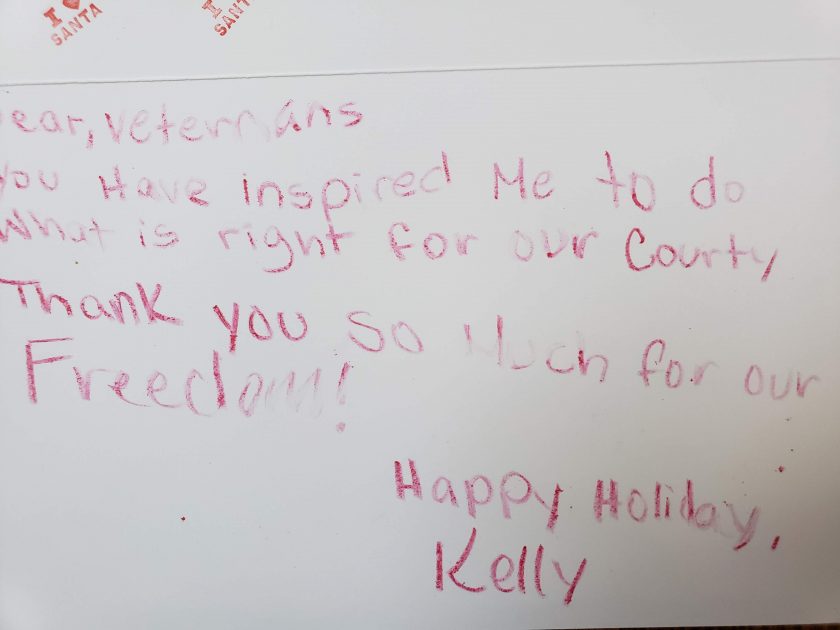 I ♥ SANTA
I SANTA
ear, Veternans
You Have inspired Me to do
What is right for our Courty
Thank you so Much for our
Freedom!
Happy Holiday,
Kelly